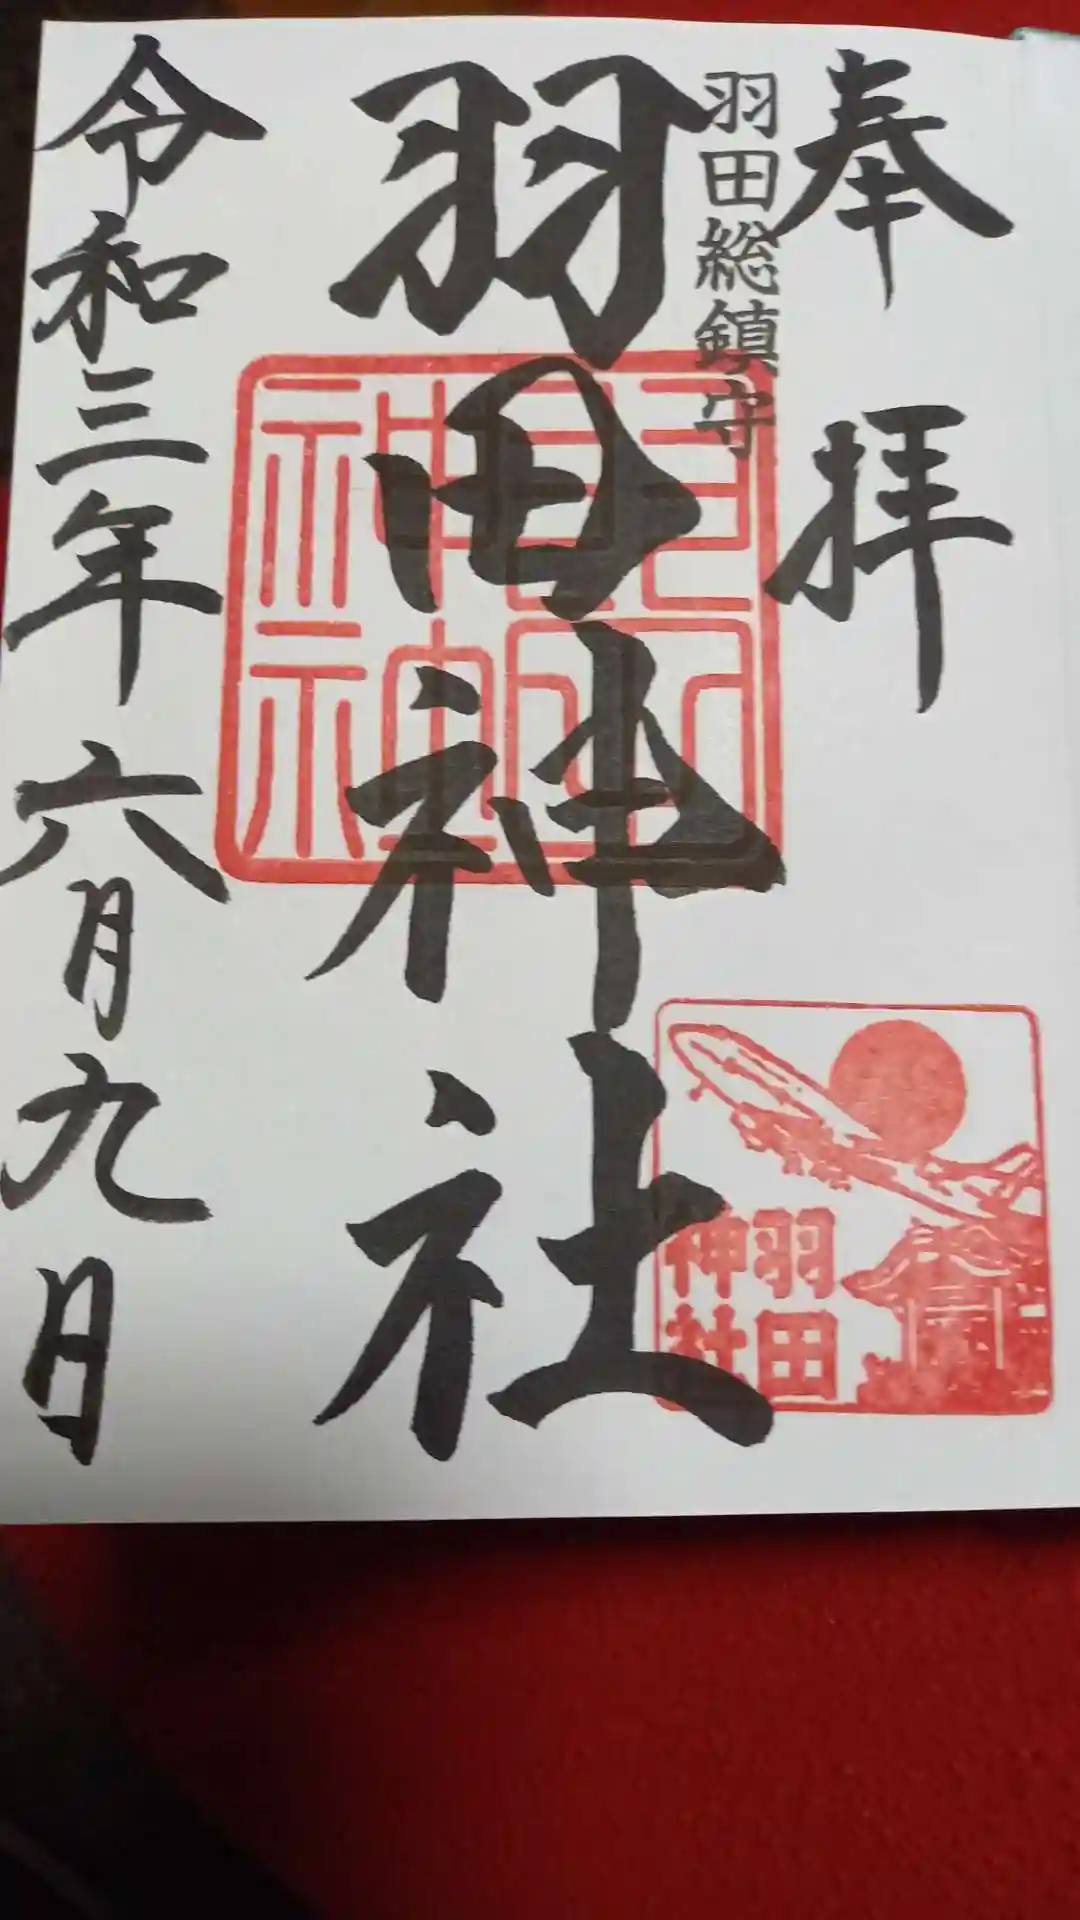 奉拝
羽田総鎮守
羽田神社
令和三年六月九日
羽田
神社
羽田
神社